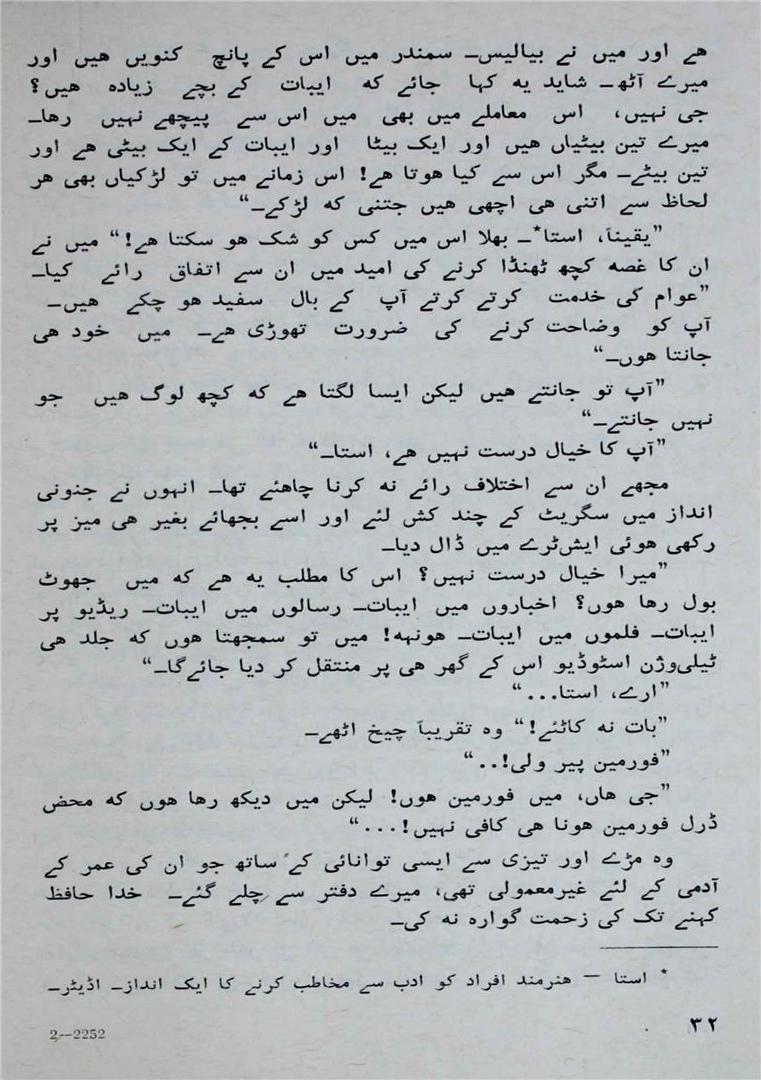 ھے اور میں نے بیالیس۔ سمندر میں اس کے پانچ کنویں ھیں اور
میرے آٹھ۔ شاید یه کہا جائے که ایبات کے بچے زیادہ ھیں؟
جی نہیں، اس معاملے میں بھی میں اس سے پیچھے نہیں رھا۔
میرے تین بیٹیاں ھیں اور ایک بیٹا اور ایبات کے ایک بیٹی ھے اور
تین بیٹے۔ مگر اس سے کیا ھوتا ھے! اس زمانے میں تو لڑکیاں بھی ھر
لحاظ سے اتنی ھی اچھی ھیں جتنی که لڑکے۔“
”یقیناً، استا*۔ بھلا اس میں کس کو شک ھو سکتا ھے!“ میں نے
ان کا غصه کچھ ٹھنڈا کرنے کی امید میں ان سے اتفاق رائے کیا۔
”عوام کی خدمت کرتے کرتے آپ کے بال سفید ھو چکے ھیں۔
آپ کو وضاحت کرنے کی ضرورت تھوڑی ھے۔ میں خود ھی
جانتا ھوں۔“
”آپ تو جانتے ھیں لیکن ایسا لگتا ھے که کچھ لوگ ھیں جو
نہیں جانتے۔“
”آپ کا خیال درست نہیں ھے، استا۔“
مجھے ان سے اختلاف رائے نه کرنا چاھئے تھا۔ انہوں نے جنونی
انداز میں سگریٹ کے چند کش لئے اور اسے بجھائے بغیر ھی میز پر
رکھی ھوئی ایش‌ٹرے میں ڈال دیا۔
”میرا خیال درست نہیں؟ اس کا مطلب یه ھے که میں جھوٹ
بول رھا ھوں؟ اخباروں میں ایبات۔ رسالوں میں ایبات۔ ریڈیو پر
ایبات۔ فلموں میں ایبات۔ ھونہه! میں تو سمجھتا ھوں که جلد ھی
ٹیلی‌وژن اسٹوڈیو اس کے گھر ھی پر منتقل کر دیا جائےگا۔“
”ارے، استا...“
”بات نه کاٹئے!“ وہ تقریباً چیخ اٹھے۔
”فورمین پیر ولی!..“
”جی ھاں، میں فورمین ھوں! لیکن میں دیکھ رھا ھوں که محض
ڈرل فورمین ھونا ھی کافی نہیں!...“
وہ مڑے اور تیزی سے ایسی توانائی کے ساتھ جو ان کی عمر کے
آدمی کے لئے غیرمعمولی تھی، میرے دفتر سے چلے گئے۔ خدا حافظ
کہنے تک کی زحمت گوارہ نه کی۔
* استا — ھنرمند افراد کو ادب سے مخاطب کرنے کا ایک انداز۔ اڈیٹر۔
۳۲
2--2252